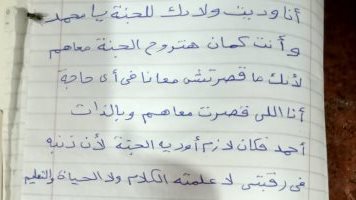 أنا وديت ولادك للجنة يا محمد
وأنت كمان هتروح الجنة معاهم
لأنك ما قصرتش معانا في أي حاجة
أنا اللى قصرت معاهم وبالذات
أحمد فكان لازم أوديه الجنة لأن ذنبه
فى رقبتى لا علمته الكلام ولا الحياة والتعليم